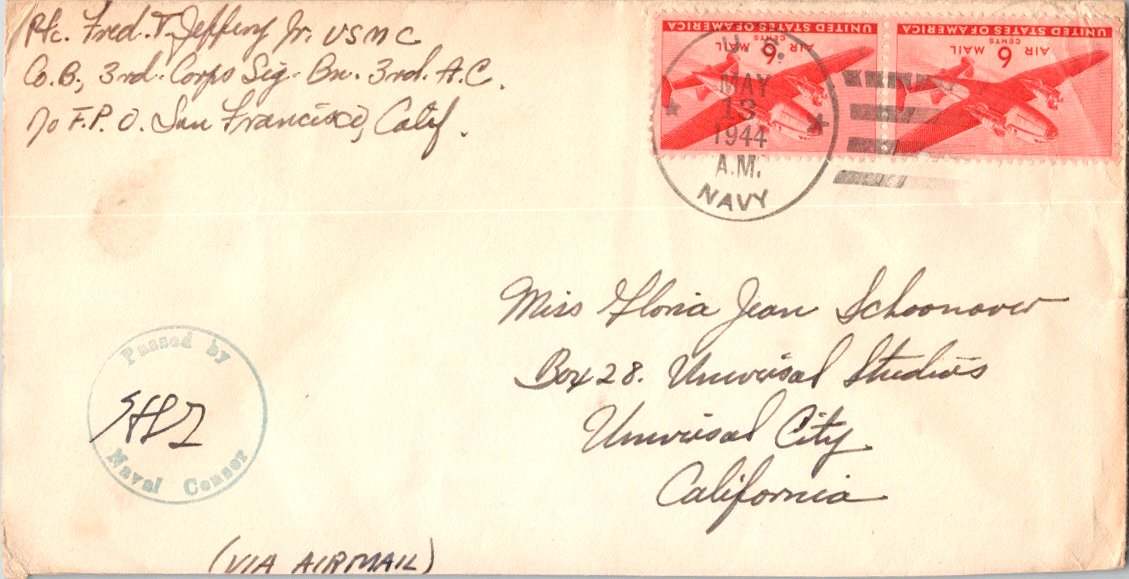 Pfc. Fred. T. Jeffery Jr. USMC
Co. B, 3rd. Corps Sig. Bn. 3rd. A.C.
c/o F.P.O. San Francisco, Calif.
UNITED STATES OF AMERICA
6 CENTS
AIR MAIL
UNITED STATES OF AMERICA
6 CENTS
AIR MAIL
U.S.
MAY
13
1944
A.M.
NAVY
Miss Gloria Jean Schoonover
Box 28. Universal Studios
Universal City
California
Passed by
Naval Censor
(VIA AIRMAIL)